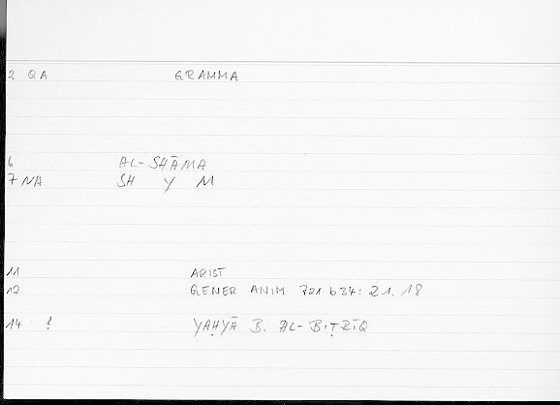 2 QA GRAMMA
6 AL-SHĀMA
7 NA SH Y M
11 ARIST
12 GENER ANIM 721 b 34: 21.18
14 ? YAḤYĀ B. AL-BIṬRĪQ